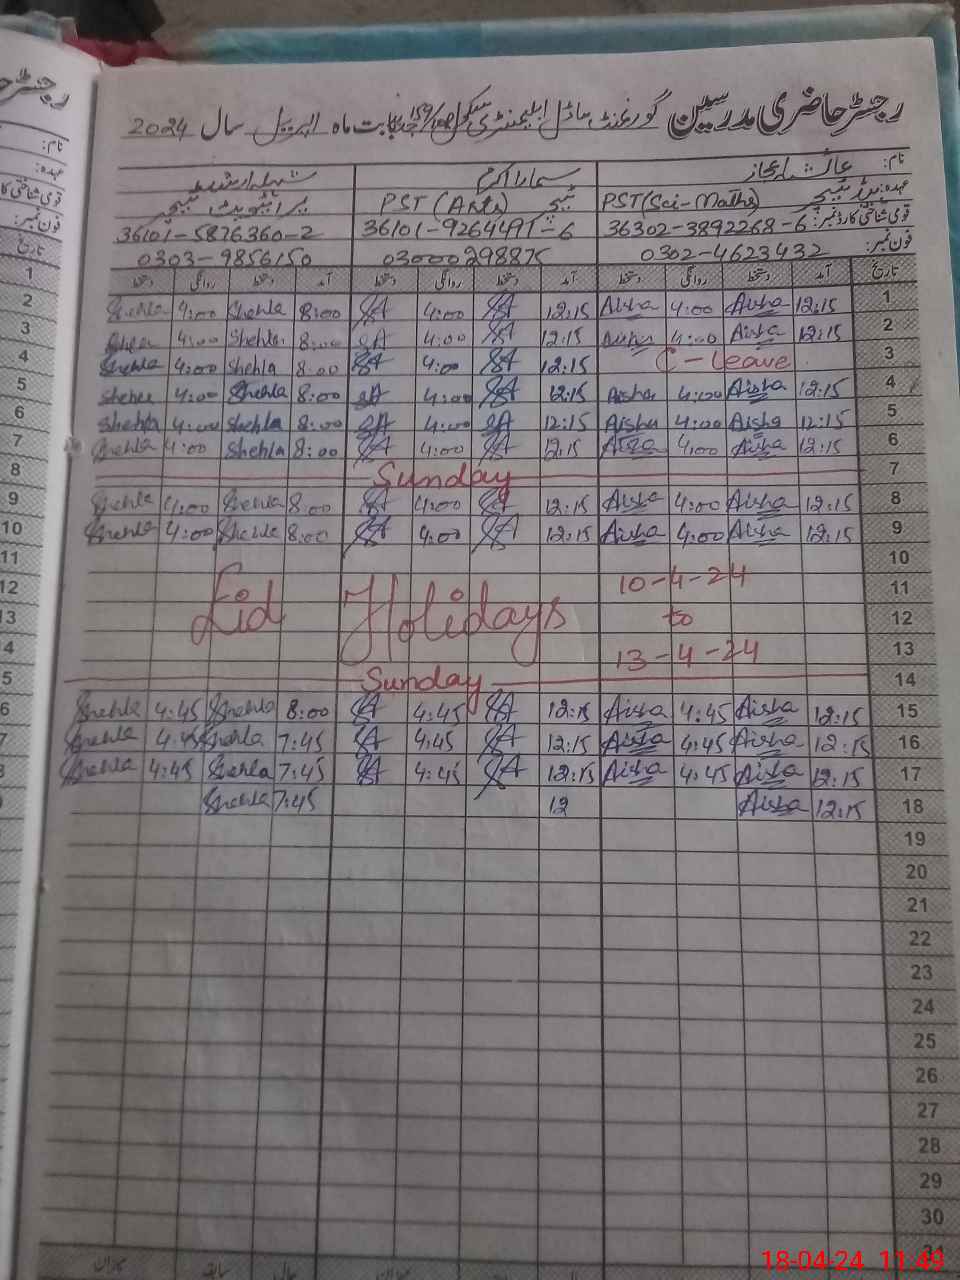 رجسٹر حاضری مدرسین گورنمنٹ ماڈل ایلیمنٹری سکول 159/ بابت ماہ اپریل سال 2024
نام: عائشہ اعجاز سمارا اکرم شہلا ارشد
عہدہ: ٹیچر PST(Sci-Maths) ٹیچر PST (Arts) پرائیویٹ ٹیچر
قومی شناختی کارڈ نمبر: 36302-3892268-6 36101-9264491-6 36101-5876360-2
فون نمبر: 0302-4623432 03000298875 0303-9856150
تاریخ آمد دستخط روانگی دستخط آمد دستخط روانگی دستخط آمد دستخط روانگی دستخط
Shehla 4:00 Shehla 8:00 SA 4:00 SA 12:15 Aisha 4:00 Aisha 12:15 1
Shehla 4:00 Shehla 8:00 SA 4:00 SA 12:15 Aisha 4:00 Aisha 12:15 2
Shehla 4:00 Shehla 8:00 SA 4:00 SA 12:15 C-Leave 3
Shehla 4:00 Shehla 8:00 SA 4:00 SA 12:15 Aisha 4:00 Aisha 12:15 4
Shehla 4:00 Shehla 8:00 SA 4:00 SA 12:15 Aisha 4:00 Aisha 12:15 5
Shehla 4:00 Shehla 8:00 SA 4:00 SA 12:15 Aisha 4:00 Aisha 12:15 6
Sunday 7
Shehla 4:00 Shehla 8:00 SA 4:00 SA 12:15 Aisha 4:00 Aisha 12:15 8
Shehla 4:00 Shehla 8:00 SA 4:00 SA 12:15 Aisha 4:00 Aisha 12:15 9
10
Eid Holidays 10-4-24 11
to 12
13-4-24 13
Sunday 14
Shehla 4:45 Shehla 8:00 SA 4:45 SA 12:15 Aisha 4:45 Aisha 12:15 15
Shehla 4:45 Shehla 7:45 SA 4:45 SA 12:15 Aisha 4:45 Aisha 12:15 16
Shehla 4:45 Shehla 7:45 SA 4:45 SA 12:15 Aisha 4:45 Aisha 12:15 17
Shehla 7:45 12 Aisha 12:15 18
19
20
21
22
23
24
25
26
27
28
29
30
31
18-04-24 11:49